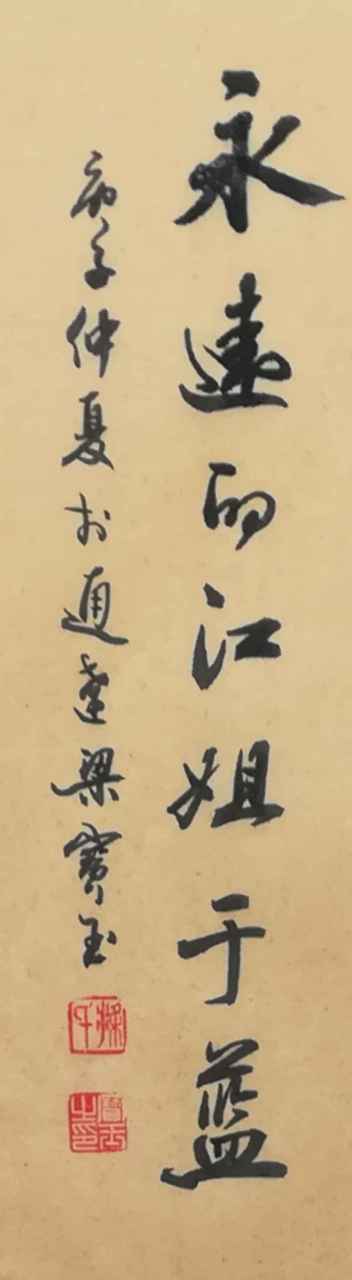 永遠的江姐于藍
庚子仲夏於通達梁寶玉